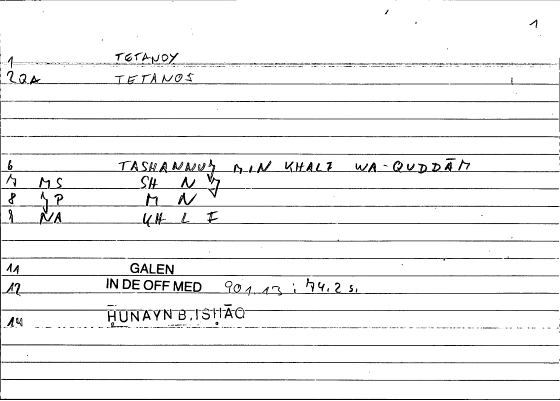 1
1 TETANOY
2 QA TETANOS
6 TASHANNUJ MIN KHALF WA-QUDDĀM
7 MS SH N J
8 JP M N
9 NA KH L F
11 GALEN
12 IN DE OFF MED 901.13 : 74.2 s.
14 ḤUNAYN B. ISḤĀQ